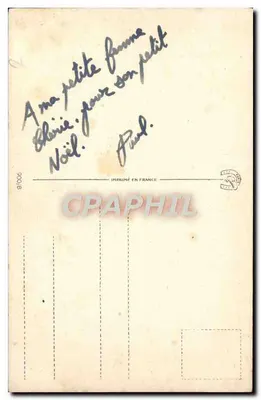 A ma petite femme
Chérie, pour son petit
Noël.
Paul.
IMPRIMÉ EN FRANCE
CPAPHIL